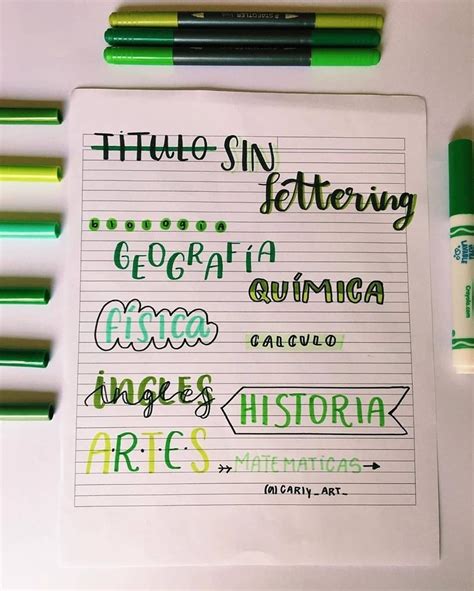 TÍTULO SIN
lettering
BIOLOGIA
GEOGRAFÍA
QUÍMICA
FÍSICA
CALCULO
INGLES
ingles
HISTORIA
ARTES
MATEMATICAS
(a) CARLY_ART_
STAEDTLER
Crayola